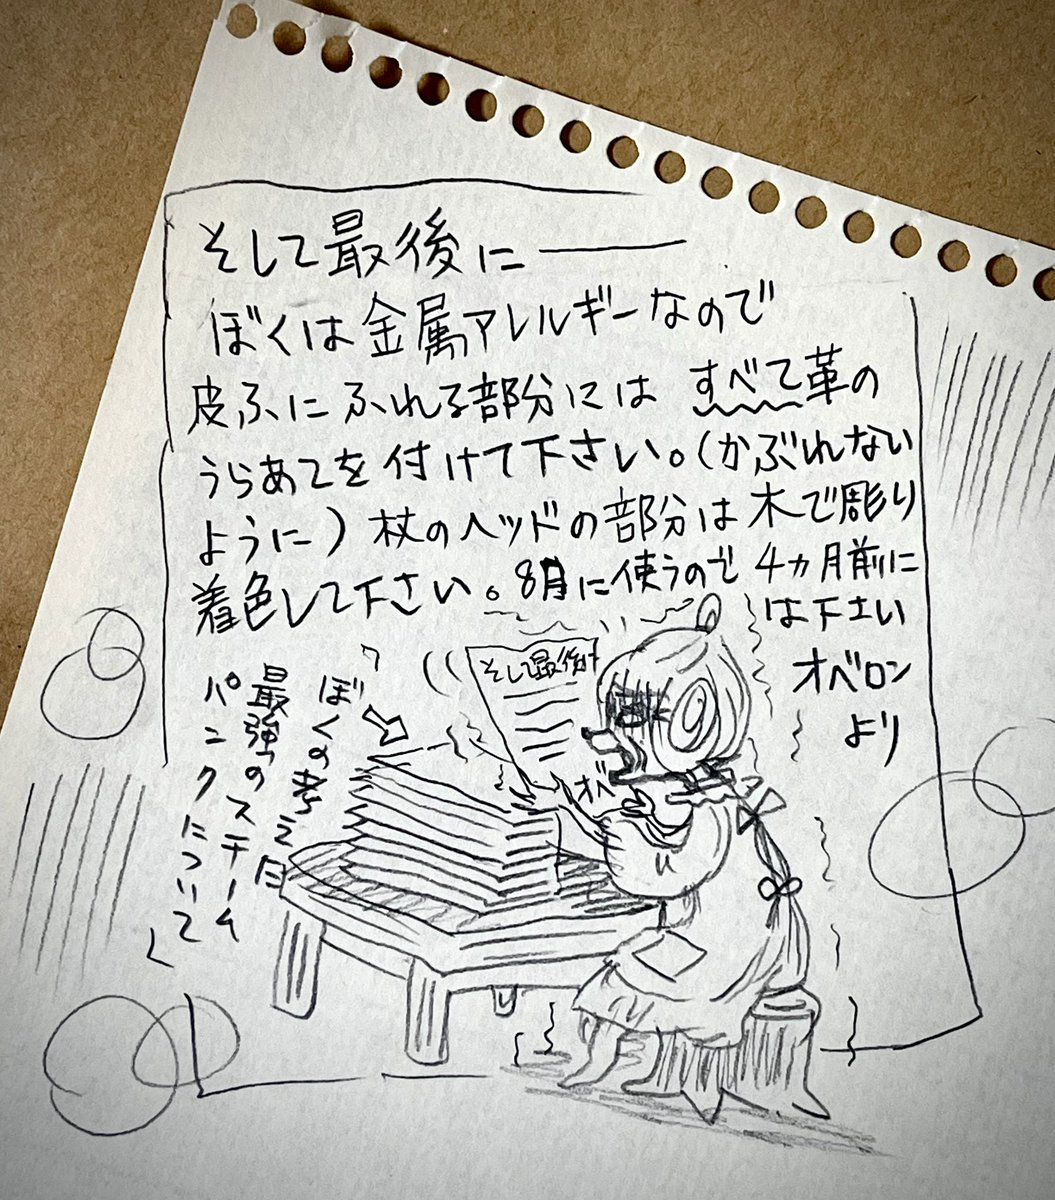 そして最後に――
ぼくは金属アレルギーなので
皮ふにふれる部分には すべて革の
うらあてを付けて下さい。(かぶれない
ように) 杖のヘッドの部分は木で彫り
着色して下さい。8月に使うので 4ヵ月前に
は下さい
オベロン
より
そして最後に
「ぼくの考えた
最強のスチーム
パンクについて」
オベ